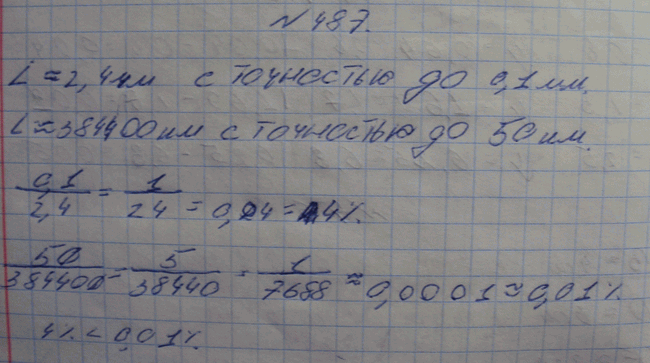 № 487.
l ≈ 2,4 мм с точностью до 0,1 мм.
L ≈ 384400 км с точностью до 50 км.
0,1/2,4 = 1/24 = 0,04 = 4%.
50/384400 = 5/38440 = 1/7688 ≈ 0,0001 ≈ 0,01%
4% < 0,01%